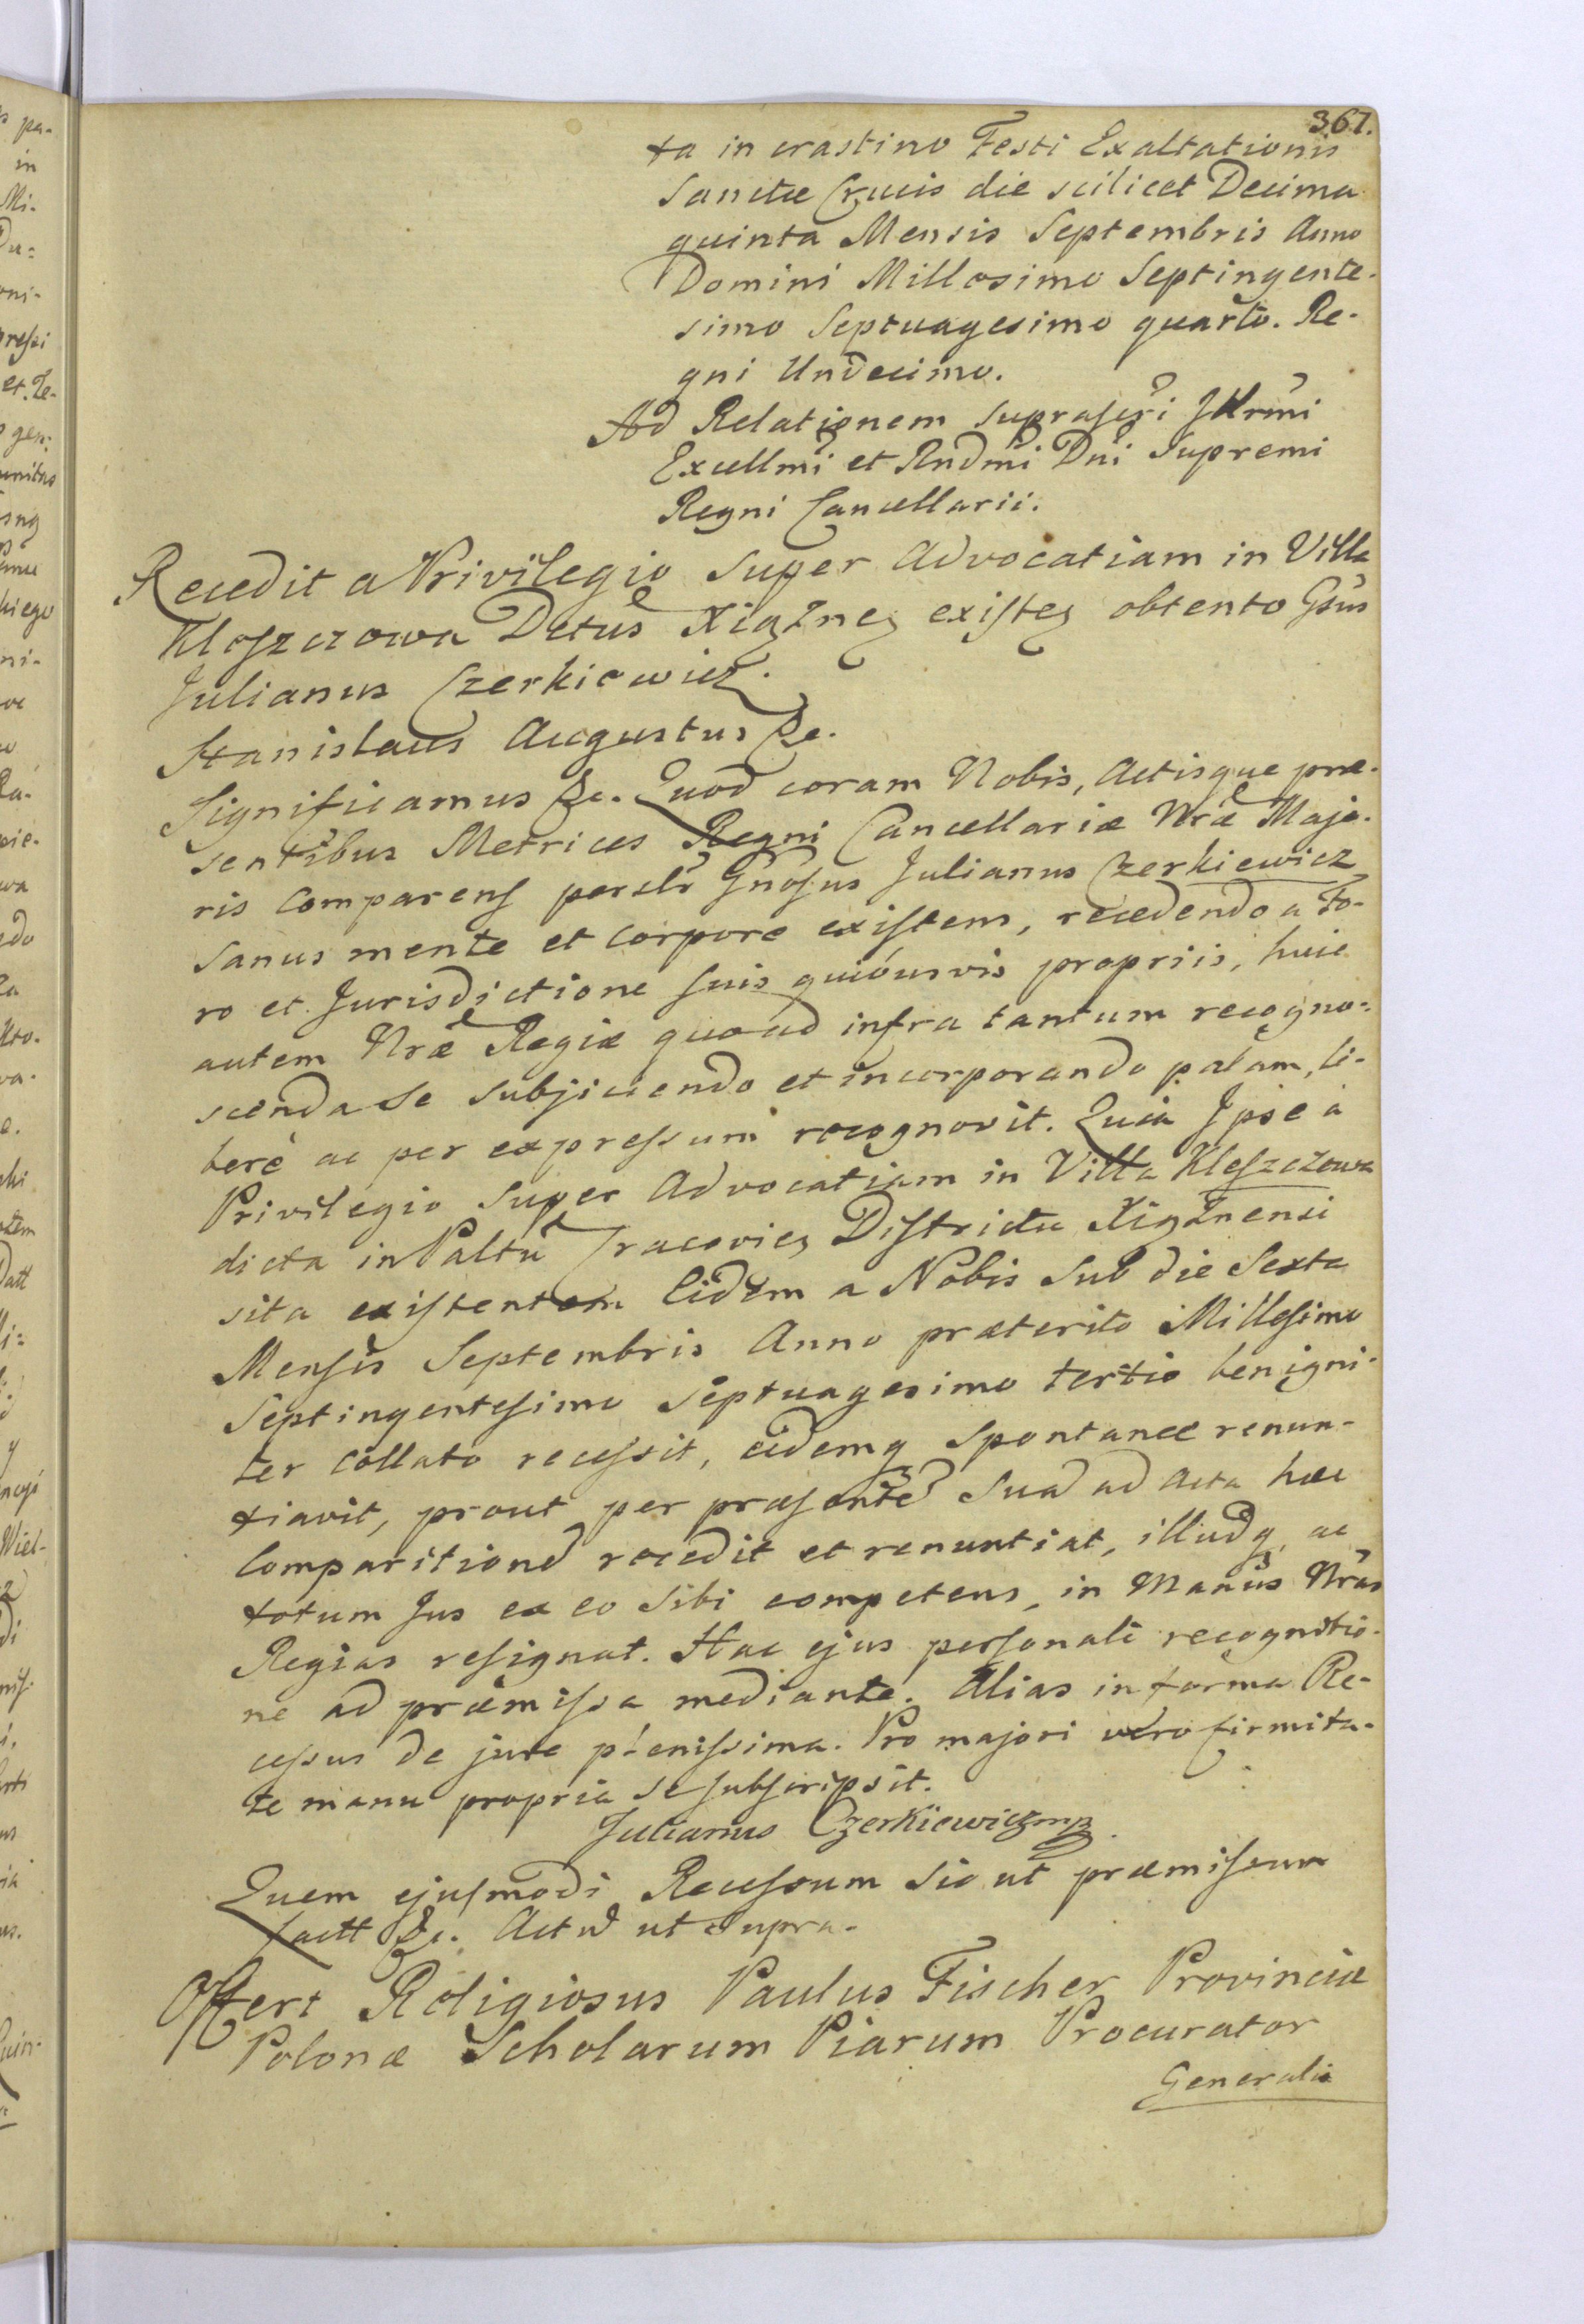 367.
ta in crastino Festi Exaltationis
Sanctæ Crucis die scilicet Decima
quinta Mensis Septembris Anno
Domini Millesimo Septingente-
simo Septuagesimo quarto. Re-
gni Undecimo.
Ad Relationem suprascri Illrmi
Excellmi et Rndmi Dni Supremi
Regni Cancellarii.
Recedit a Privilegio super Advocatiam in Villa
Kleszczowa Dctus Xiążneg existeg obtento Gsus
Julianus Czerkiewicz.
Stanislaus Augustus &c.
Significamus &c. Quod coram Nobis, Actisque præ-
sentibus Metrices Regni Cancellariæ Nræ Majo-
ris Comparens perslr Gnosus Julianus Czerkiewicz
sanus mente et corpore existens, recedendo a Fo-
ro et Jurisdictione suis quibusvis propriis, huic
autem Nræ Regiæ quoad infra tantum recogno-
scenda se subjiciendo et incorporando palam, li-
berè ac per expressum recognovit. Quia Ipse à
Privilegio super Advocatiam in Villa Kleszczowa
dicta in Paltu Cracovieg Districtu Xiążnensi
sita existentem Eidem a Nobis sub die Sexta
Mensis Septembris Anno præterito Millesimo
Septingentesimo Septuagesimo tertio benigni-
ter collato recessit, eidemq spontanee renun-
tiavit, prout per præsente sua ad Acta hæc
Comparitione recedit et renuntiat, illudq ac
totum Jus ex eo sibi competens, in Manus Nras
Regias resignat. Hac ejus personali recognitio-
ne ad præmissa mediante. Alias in forma Re-
cessus de jure plenissima. Pro majori vero firmita-
te manu propria se subscripsit.
Julianus Czerkiewicz mp
Quem ejusmodi Recessum sic ut præmissum
factt &c. Actu ut supra.
Offert Religiosus Paulus Fischer Provinciæ
Polonæ Scholarum Piarum Procurator
Generalis